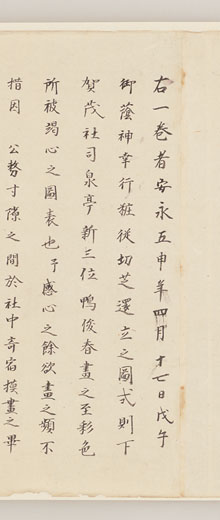 右一巻者安永五申年四月十七日戊午
御蔭神幸行粧従切芝還立之圖式則下
賀茂社司泉亭新三位鴨俊春畫之至彩色
所被竭心之圖袠也予感心之餘欲畫之頻不
措因公務寸隙之間於社中寄宿摸畫之畢